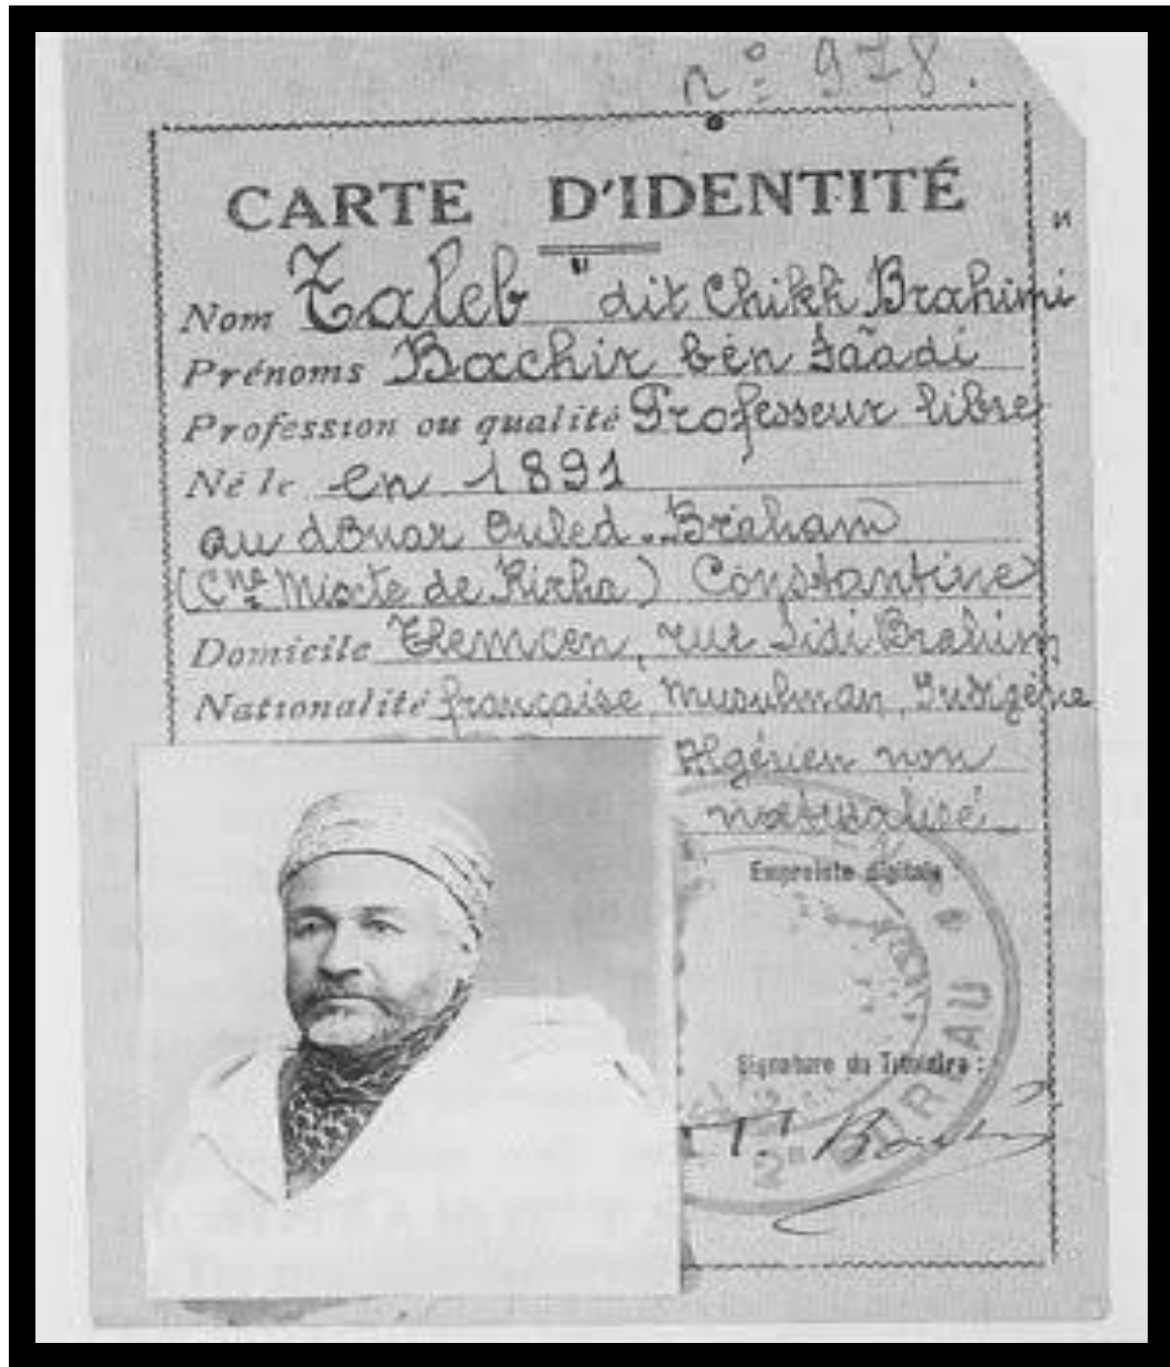 n° 978.
CARTE D'IDENTITÉ
Nom Taleb "dit Chikh Brahimi"
Prénoms Bachir ben Sãadi
Profession ou qualité Professeur libre
Né le en 1891
au douar Ouled-Braham
(Cne Mixte de Rirha) Constantine
Domicile Tlemcen, rue Sidi Brahim
Nationalité française, Musulman, Indigène
Algérien non
naturalisé
Empreinte digitale :
Signature du Titulaire :
BUREAU
2e